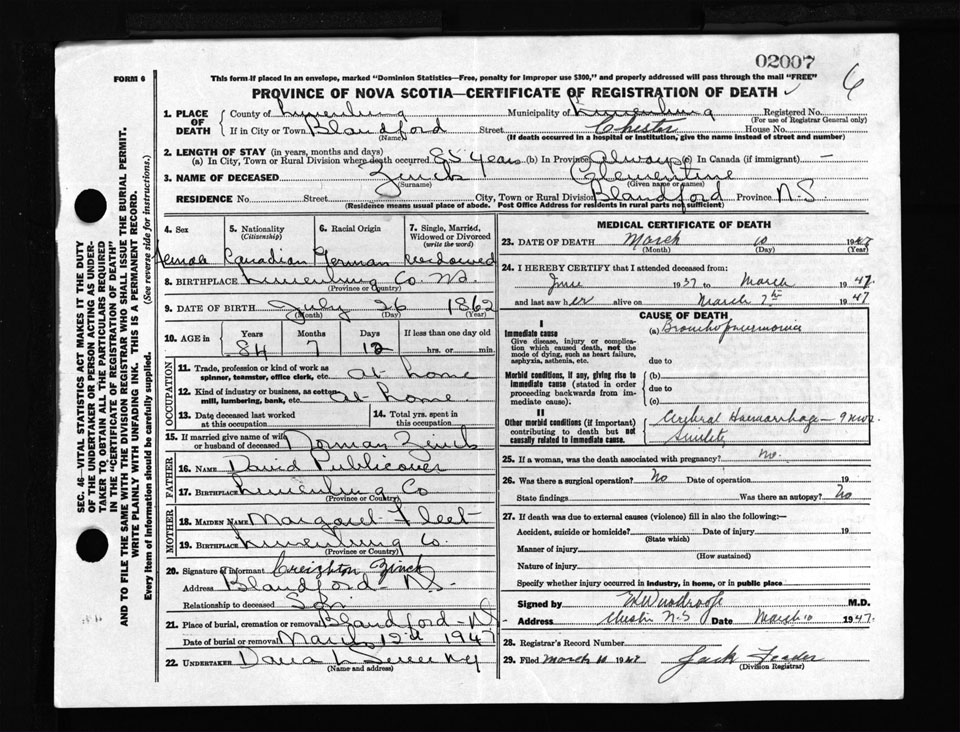 02007
FORM 6
This form if placed in an envelope, marked "Dominion Statistics—Free, penalty for improper use $300," and properly addressed will pass through the mail "FREE"
6
PROVINCE OF NOVA SCOTIA—CERTIFICATE OF REGISTRATION OF DEATH
1. PLACE OF DEATH
County of Lunenburg Municipality of Lunenburg Registered No.
(For use of Registrar General only)
If in City or Town Blandford Street Chester House No.
(Name) (If death occurred in a hospital or institution, give the name instead of street and number)
2. LENGTH OF STAY (in years, months and days)
(a) In City, Town or Rural Division where death occurred 85 years (b) In Province Always (c) In Canada (if immigrant) —
3. NAME OF DECEASED Zinck Clementine
(Surname) (Given name or names)
RESIDENCE No. Street City, Town or Rural Division Blandford Province N.S
(Residence means usual place of abode. Post Office Address for residents in rural parts not sufficient)
4. Sex 5. Nationality (Citizenship) 6. Racial Origin 7. Single, Married, Widowed or Divorced (write the word)
Female Canadian German widowed
8. BIRTHPLACE Lunenburg Co. N.S.
(Province or Country)
9. DATE OF BIRTH July 26 1862
(Month) (Day) (Year)
10. AGE in Years Months Days If less than one day old
84 7 12 hrs. or min.
OCCUPATION
11. Trade, profession or kind of work as spinner, teamster, office clerk, etc. at home
12. Kind of industry or business, as cotton-mill, lumbering, bank, etc. at home
13. Date deceased last worked at this occupation
14. Total yrs. spent in this occupation
15. If married give name of wife or husband of deceased Norman Zinck
FATHER
16. NAME David Publicover
17. BIRTHPLACE Lunenburg Co
(Province or Country)
MOTHER
18. MAIDEN NAME Margaret Fleet
19. BIRTHPLACE Lunenburg Co.
(Province or Country)
20. Signature of informant Creighton Zinck
Address Blandford - N.S-
Relationship to deceased Son
21. Place of burial, cremation or removal Blandford - NS
Date of burial or removal March 12 1947
22. UNDERTAKER
(Name and address)
MEDICAL CERTIFICATE OF DEATH
23. DATE OF DEATH March 10 1947
(Month) (Day) (Year)
24. I HEREBY CERTIFY that I attended deceased from:
June 1937 to March 1947.
and last saw her alive on March 7th 1947
CAUSE OF DEATH
I
Immediate cause
Give disease, injury or complication which caused death, not the mode of dying, such as heart failure, asphyxia, asthenia, etc.
(a) Bronchopneumonia
due to
Morbid conditions, if any, giving rise to immediate cause (stated in order proceeding backwards from immediate cause).
(b)
due to
(c)
II
Other morbid conditions (if important) contributing to death but not causally related to immediate cause.
Cerebral Haemorrhage — 9
Senility
25. If a woman, was the death associated with pregnancy? no.
26. Was there a surgical operation? No Date of operation 19
State findings Was there an autopsy? No
27. If death was due to external causes (violence) fill in also the following:—
Accident, suicide or homicide? Date of injury 19
(State which)
Manner of injury
(How sustained)
Nature of injury
Specify whether injury occurred in industry, in home, or in public place
Signed by M.D.
Address Chester N.S Date March 10 1947.
28. Registrar's Record Number
29. Filed March 10 1947 Jack
(Division Registrar)
SEC. 46—VITAL STATISTICS ACT MAKES IT THE DUTY
OF THE UNDERTAKER OR PERSON ACTING AS UNDER-
TAKER TO OBTAIN ALL THE PARTICULARS REQUIRED
IN THE "CERTIFICATE OF REGISTRATION OF DEATH"
AND TO FILE THE SAME WITH THE DIVISION REGISTRAR WHO SHALL ISSUE THE BURIAL PERMIT.
WRITE PLAINLY WITH UNFADING INK. THIS IS A PERMANENT RECORD.
Every item of Information should be carefully supplied. (See reverse side for instructions.)